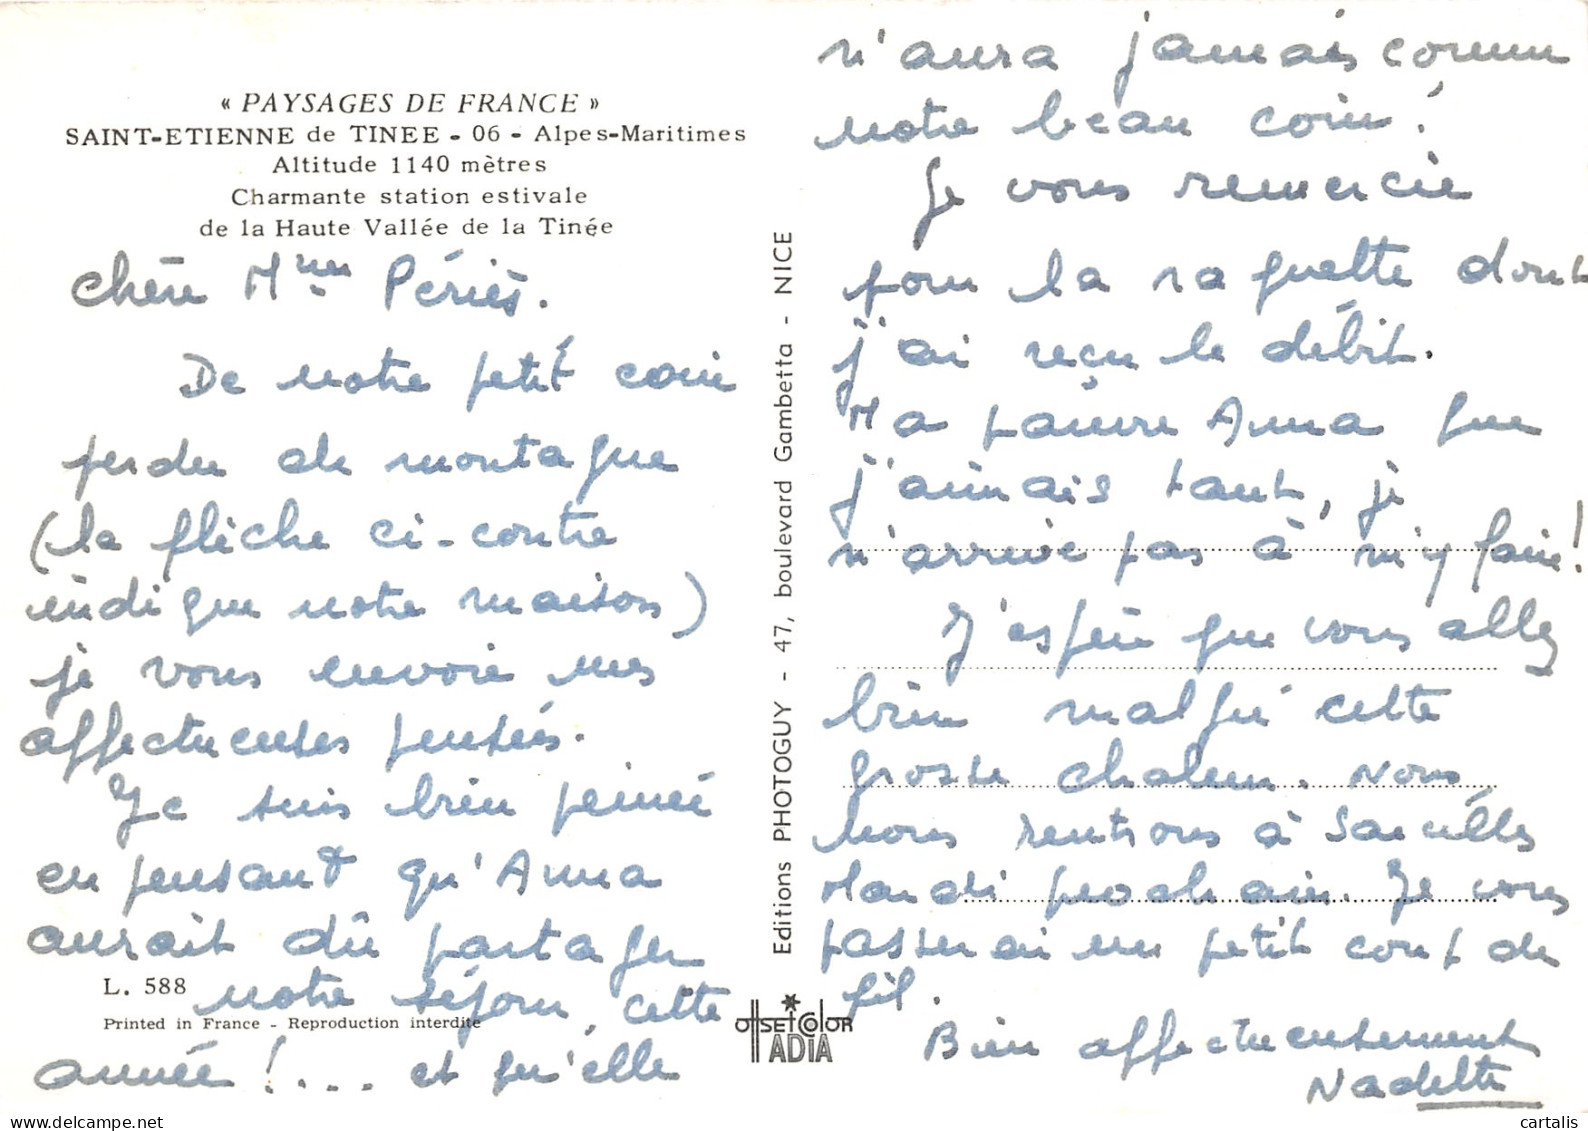 « PAYSAGES DE FRANCE »
SAINT-ETIENNE de TINEE - 06 - Alpes-Maritimes
Altitude 1140 mètres
Charmante station estivale
de la Haute Vallée de la Tinée
Chère Mme Périès.
De notre petit coin
perdu de montagne
(la flèche ci-contre
indique notre maison)
je vous envoie mes
affectueuses pensées.
Je suis bien peinée
en pensant qu'Anna
aurait dû partager
notre séjour, cette
année !... et qu'elle
L. 588
Printed in France - Reproduction interdite
Editions PHOTOGUY - 47, boulevard Gambetta - NICE
OffSET COlOR
ADIA
n'aura jamais connu
notre beau coin !
Je vous remercie
pour la raquette dont
j'ai reçu le débit.
Ma pauvre Anna que
j'aimais tant, je
n'arrive pas à m'y faire !
J'espère que vous allez
bien malgré cette
grosse chaleur. Nous
nous rentrons à Sarcelles
Mardi prochain. Je vous
passerai un petit coup de
fil.
Bien affectueusement
Nadette
cartalis